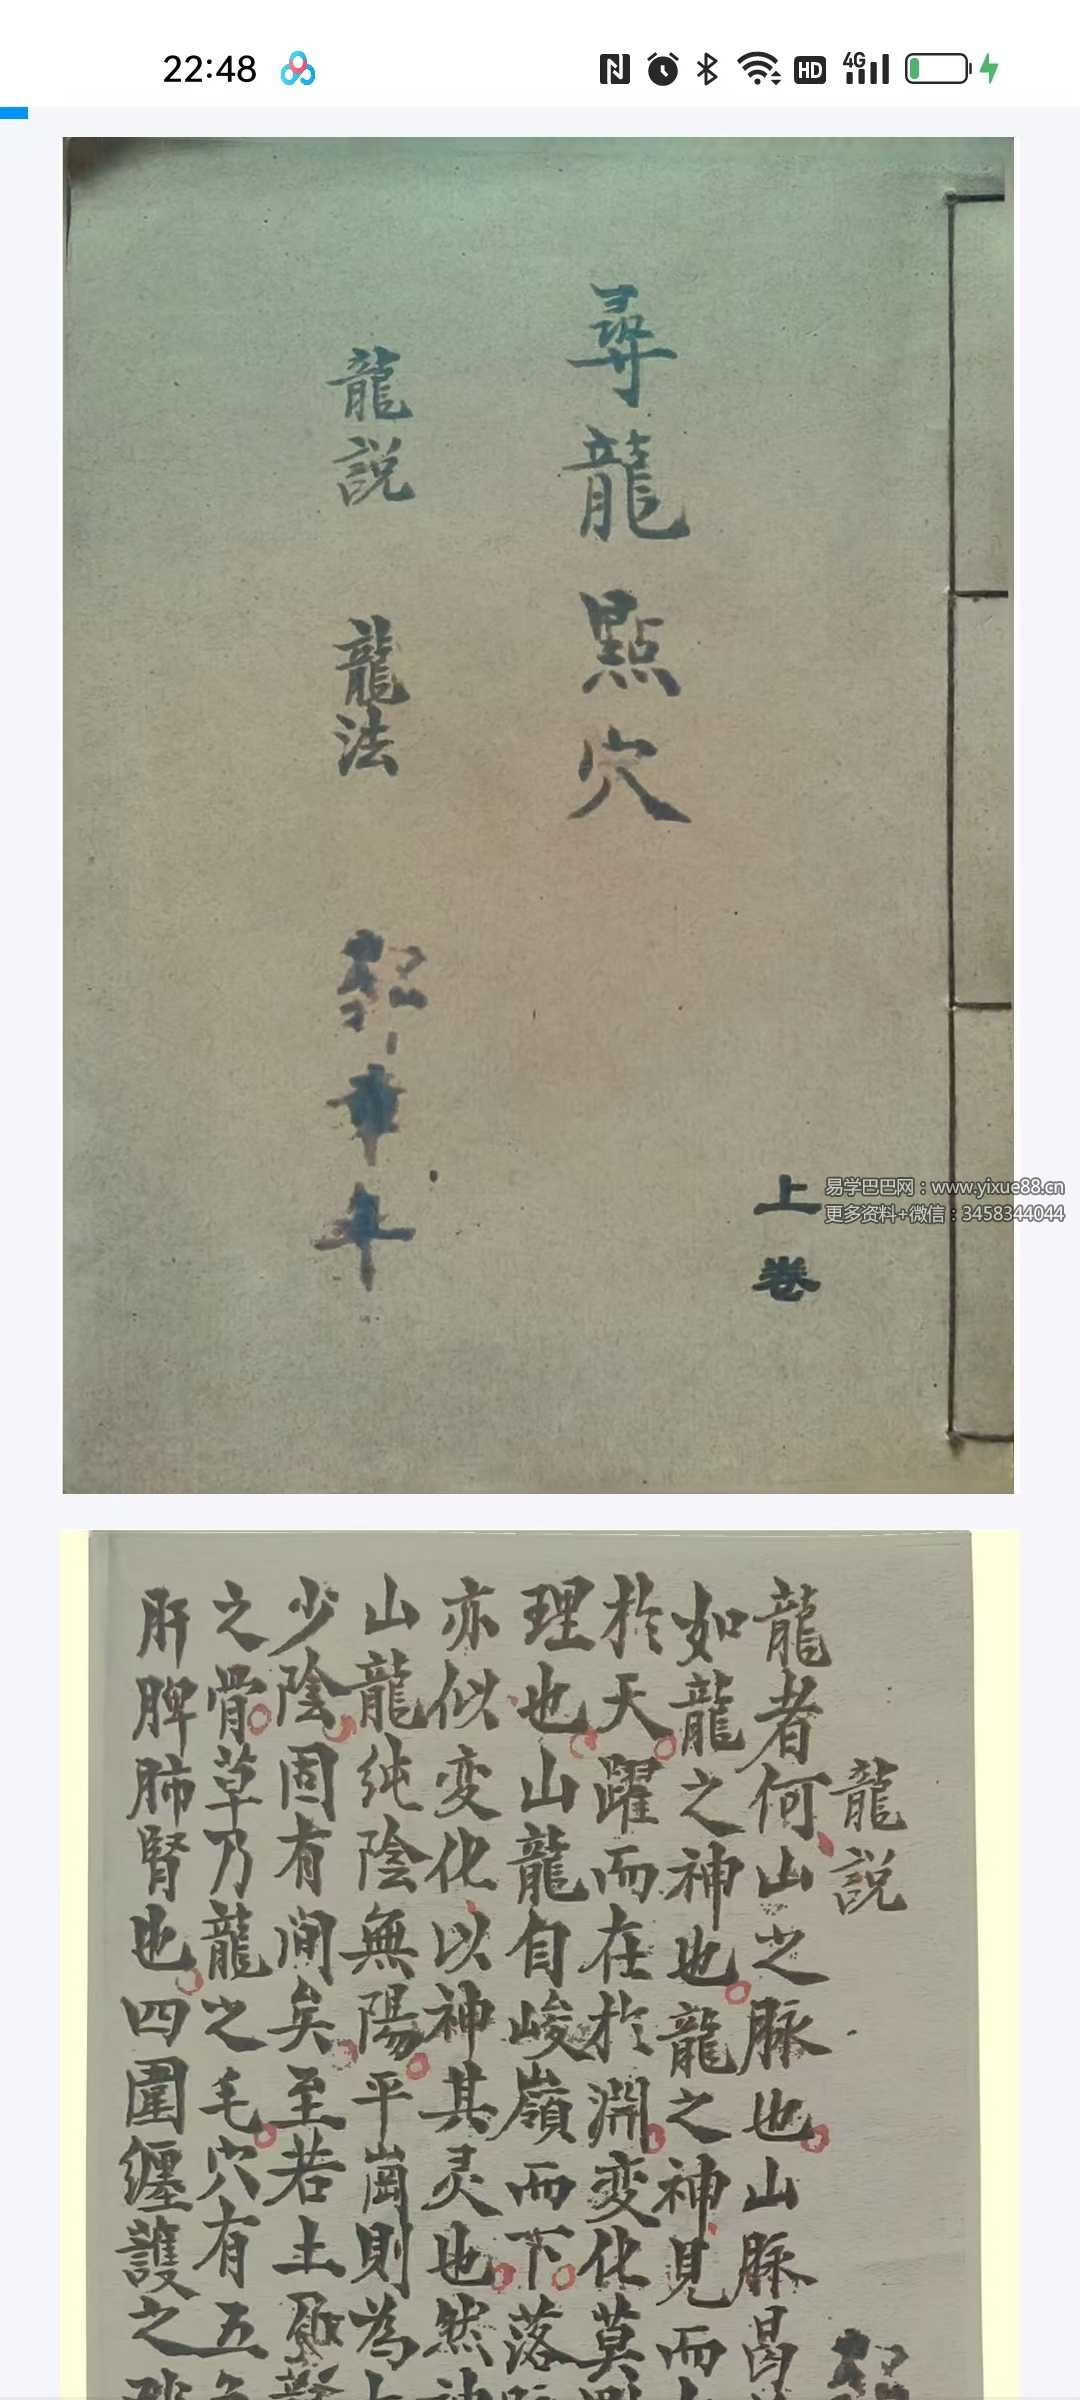 22:48
HD
4G
尋龍點穴
上卷
龍説 龍法
章年
易学巴巴网：www.yixue88.cn
更多资料+微信：3458344044
龍説
龍者何山之脉也山脉曷
如龍之神也龍之神見而
於天躍而在於淵变化莫
理也山龍自峻嶺而下落
亦似变化以神其灵也然
山龍純陰無陽平崗則為
少陰固有间矣至若土
之骨草乃龍之毛穴有五
肝脾肺腎也四圍纏護之